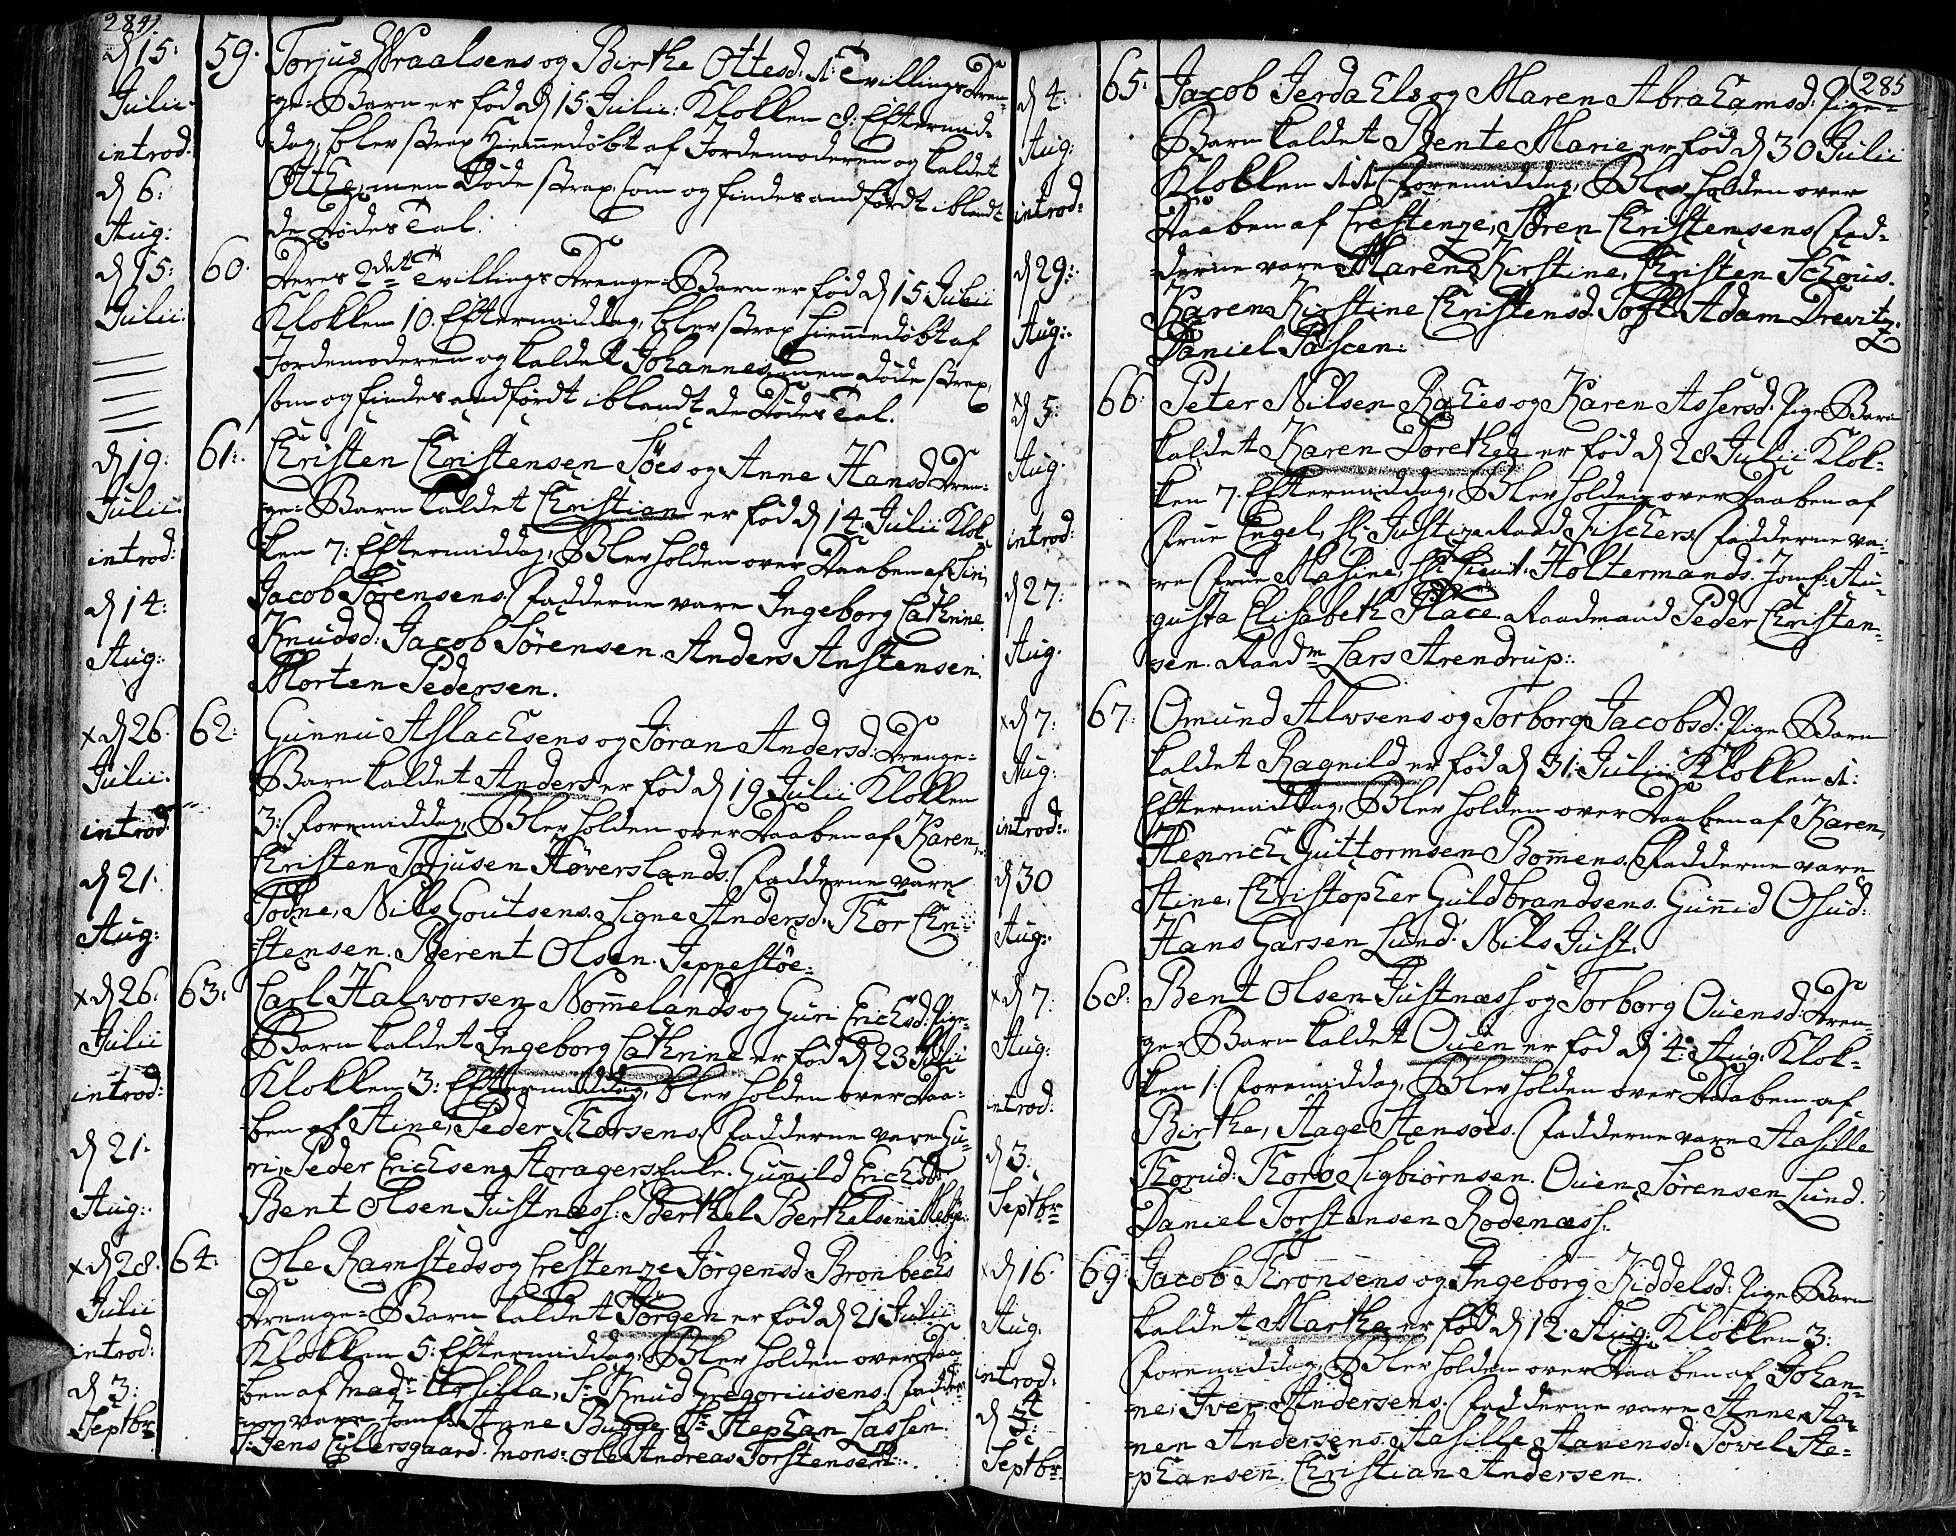 284.
d 15:
Julii.
introd:
d 6:
Aug:
59. Torjus Wraalsens og Birthe Ottesd: 1: Tvillings Dren-
ge-Barn er fød d 15 Julii: Klokken 8: Eftermid-
dag, blev strax Hiemmedøbt af Jordemoderen og kaldet
Otthe, men Døde strax, som og findes andført iblandt
de Dødes Tal.
d 15:
Julii:
60. Deres 2det Tvillings Drenge-Barn er fød d 15 Julii
Klokken 10. Eftermiddag, blev strax Hiemmedøbt af
Jordemoderen og kaldet Johannes, men Døde strax,
som og findes andført iblandt de Dødes Tal.
d 19:
Julii:
introd:
d 14:
Aug:
61: Christen Christensen Söes og Anne Hansd: Dren-
ge-Barn kaldet Christian er fød d 14. Julii Klok-
ken 7: Eftermiddag, Blev holden over Daaben af Siri,
Jacob Sørensens. Fadderne vare Ingeborg Cathrine
Knudsd: Jacob Sørensen. Anders Anstensen.
Morten Pedersen.
x d 26.
Julii:
introd:
d 21:
Aug:
62: Gunnu Aslachsens og Jøran Andersd: Drenge-
Barn kaldet Anders er fød d 19 Julii Klokken
3: Foremiddag, Blev holden over Daaben af Karen,
Christen Torjusen Høverslands. Fadderne vare
Todne, Nils Goutsens. Signe Andersd. Thor Chri-
stensen. Berent Olsen. Jeppestøe.
x d 26.
Julii
introd:
d 21:
Aug:
63: Carl Halvorsen Nommelands og Guri Erichsd: Pige-
Barn kaldet Ingeborg Cathrine er fød d 23 Julii
Klokken 3: Eftermiddag, blev holden over Daa-
ben af Stine, Peder Thorsens. Fadderne vare Gu-
ri, Peder Erichsen Aoragers Enke. Gunnild Erichsd:
Bent Olsen Justnæss. Berthel Berthelsen
x d 28.
Julii
introd:
d 3:
Septbr
64: Ole Ramsteds og Crestenze Jörgensd Bronbechs
Drenge-Barn kaldet Jörgen er fød d 21 Julii
Klokken 5: Eftermiddag, Blev holden over Daa-
ben af Madr Ursilla, Sr Knud Gregoriusens. Fadder-
ne vare Jomf: Anne Bugge. Sr Stephan Lassen.
Sr Jens Eylersgaard. Mons: Ole Andreas Torstensen.
285
d 4:
Aug:
introd:
d 29:
Aug:
65: Jacob Jerdahls og Maren Abrahamsd: Pige-
Barn kaldet Bente Marie er fød d 30 Julii
Klokken 11 Foremiddag, Blev holden over
Daaben af Crestenze, Sören Christensens. Fad-
derne vare Maren Kirstine, Christen Schous.
Karen Kirstine Christensd. Toft. Adam Drevitz.
Daniel Pascen.
x 5:
Aug.
introd:
d 27:
Aug.
66: Peter Nilsen Rahes og Karen Assersd. Pige Barn
kaldet Karen Dorethea er fød d 28 Julii Klok-
ken 7. Eftermiddag, Blev holden over Daaben af
Frue Engel, Hr Justize Raad Fischers. Fadderne va-
re Frue Malene, Hr Lieut: Holtermands. Jomf: Au-
gusta Elisabeth Place. Raadmand Peder Christen-
sen. Raadm Lars Arendrup.
x d 7:
Aug:
introd:
d 30
Aug:
67: Omund Alvsens og Torborg Jacobsd: Pige Barn
kaldet Ragnild er fød d 31 Julii Klokken 1:
Eftermiddag, Blev holden over Daaben af Karen,
Henrich Guttormsen Bommens. Fadderne vare
Stine, Christopher Guldbrandsens. Gunnid Osud:
Hans Garsen Lund. Nils Just.
x d 7.
Aug:
introd:
d 3:
Septbr
68: Bent Olsen Justnæss og Torborg Ouensd: Dren-
ge Barn kaldet Ouen er fød d 4: Aug. Klok-
ken 1: Foremiddag, Blev holden over Daaben af
Birthe, Aage Stensøes. Fadderne vare Aasille
Thorud: Thore Sigbiörnsen. Ouen Sørensen Lund.
Daniel Torstensen Rodenæss.
x d 16.
Aug.
introd:
d 4
Septbr
69: Jacob Thronsens og Ingeborg Kiddelsd: Pige Barn
kaldet Marthe er fød d 12. Aug: Klokken 3:
Foremiddag, Blev holden over Daaben af Johan-
ne, Iver Andersens. Fadderne vare Anne, Aa-
nen Andersens. Aasille Aanensd: Povel Ste-
phansen. Christian Andersen.